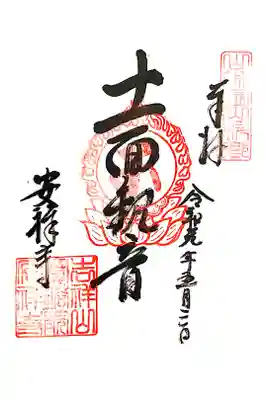 奉拝
令和元年五月二日
十一面観音
安祥寺
吉祥山